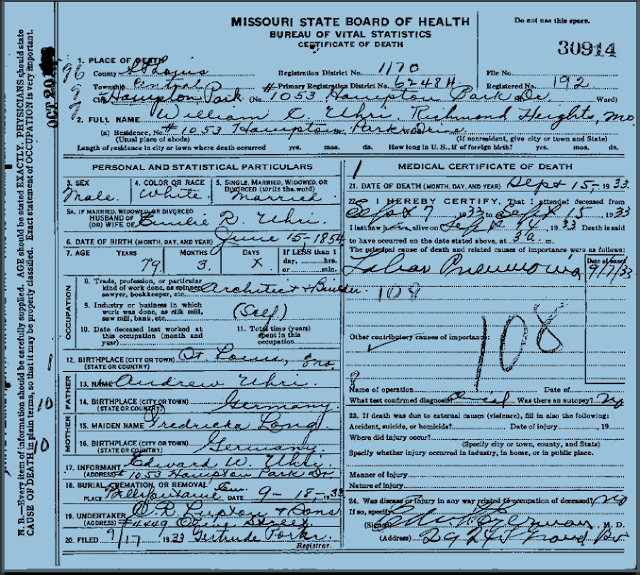 MISSOURI STATE BOARD OF HEALTH
BUREAU OF VITAL STATISTICS
CERTIFICATE OF DEATH
Do not use this space.
30914
1. PLACE OF DEATH
County St Louis Registration District No. 1170 File No.
Township Central Primary Registration District No. 6248H Registered No. 192
City Hampton Park (No. 1053 Hampton Park Dr. Ward)
2. FULL NAME William C Uhri Richmond Heights, Mo.
(a) Residence, No. #1053 Hampton Park Drive
(Usual place of abode) (If nonresident, give city or town and State)
Length of residence in city or town where death occurred yrs. mos. ds. How long in U. S., if of foreign birth? yrs. mos. ds.
PERSONAL AND STATISTICAL PARTICULARS
3. SEX Male 4. COLOR OR RACE White 5. SINGLE, MARRIED, WIDOWED, OR DIVORCED (write the word) Married
5A. IF MARRIED, WIDOWED, OR DIVORCED
HUSBAND OF
(OR) WIFE OF Emilie R. Uhri.
6. DATE OF BIRTH (MONTH, DAY, AND YEAR) June 15-1854
7. AGE YEARS 79 MONTHS 3. DAYS X If LESS than 1 day, hrs. or min.
OCCUPATION
8. Trade, profession, or particular kind of work done, as spinner, sawyer, bookkeeper, etc. Architect & Builder
9. Industry or business in which work was done, as silk mill, saw mill, bank, etc. (Self)
10. Date deceased last worked at this occupation (month and year)
11. Total time (years) spent in this occupation
12. BIRTHPLACE (CITY OR TOWN) St. Louis, Mo.
(STATE OR COUNTRY)
FATHER
13. NAME Andrew Uhri.
14. BIRTHPLACE (CITY OR TOWN) Germany.
(STATE OR COUNTRY)
MOTHER
15. MAIDEN NAME Fredricka Long
16. BIRTHPLACE (CITY OR TOWN) Germany.
(STATE OR COUNTRY)
17. INFORMANT Edward W. Uhri.
(ADDRESS) #1053 Hampton Park Dr
18. BURIAL, CREMATION, OR REMOVAL
PLACE Bellefontaine Cem 9-18-33
19. UNDERTAKER R. Lupton & Sons
(ADDRESS) #4449 Olive Street
20. FILED 9/17 1933 Gertrude
Registrar.
MEDICAL CERTIFICATE OF DEATH
21. DATE OF DEATH (MONTH, DAY, AND YEAR) Sept 15- 1933
22. I HEREBY CERTIFY, That I attended deceased from
Sept 7, 1933 to Sept 15, 1933
I last saw him alive on Sept 14, 1933 Death is said
to have occurred on the date stated above, at m.
The principal cause of death and related causes of importance were as follows:
Date of onset
Lobar Pneumonia 9/7/33
108
108
Other contributory causes of importance:
Name of operation Date of
What test confirmed diagnosis? Was there an autopsy? No
23. If death was due to external causes (violence), fill in also the following:
Accident, suicide, or homicide? Date of injury , 19
Where did injury occur?
(Specify city or town, county, and State)
Specify whether injury occurred in industry, in home, or in public place.
Manner of injury
Nature of injury
24. Was disease or injury in any way related to occupation of deceased? No
If so, specify
(Signed) M. D.
(Address)
N. B.—Every item of information should be carefully supplied. AGE should be stated EXACTLY. PHYSICIANS should state
CAUSE OF DEATH in plain terms, so that it may be properly classified. Exact statement of OCCUPATION is very important.
OCT 20
96
9
9
1
10
10